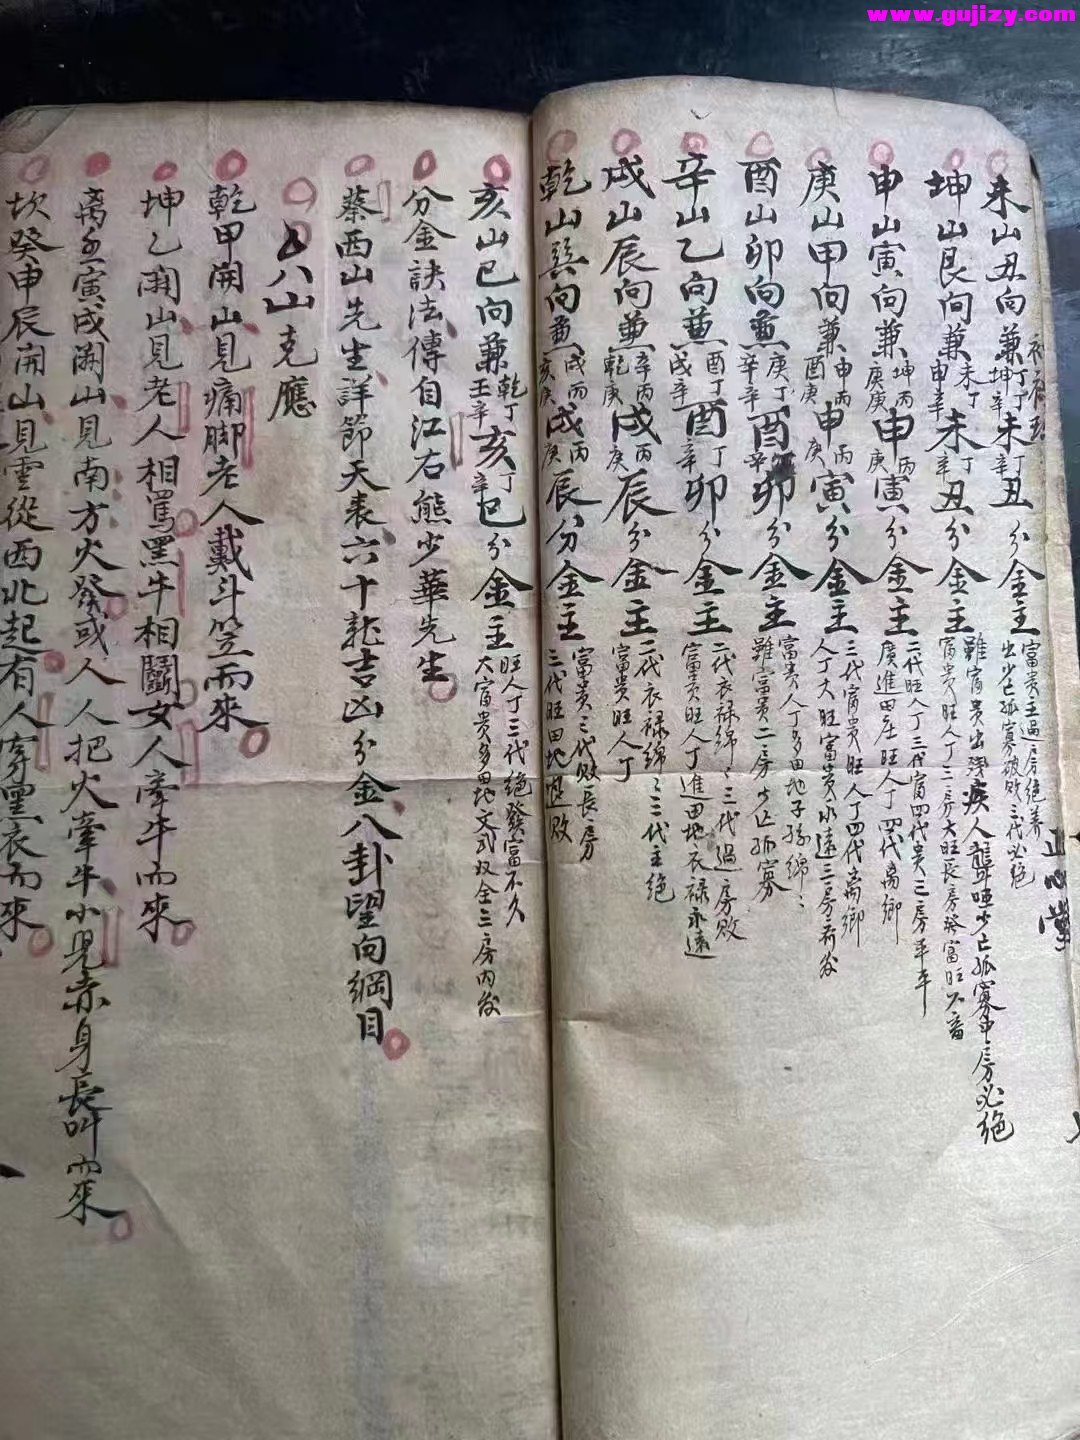 www.gujizy.com
未山丑向兼丁丁坤辛未丁辛丑分金主富貴主過房絕養出少亡孤寡破敗三代必絕
坤山艮向兼未丁申辛未丁辛丑分金主雖富貴出殘疾人聾啞少亡孤寡中房必絕富貴旺人丁三房大旺長房發富旺六畜
申山寅向兼坤丙庚庚申丙庚寅分金主二代旺人丁三代富四代貴三房平平廣進田庄旺人丁四代离鄉
庚山甲向兼申丙酉庚申丙庚寅分金主三代富貴旺人丁四代出离鄉人丁大旺富貴永遠三房齐发
酉山卯向兼庚丁辛辛酉丁辛卯分金主富貴人丁多田地子孫綿〻雖富貴二房少亡孤寡
辛山乙向兼酉丁戌辛酉丁辛卯分金主二代衣禄綿〻三代過房敗富貴旺人丁進田地衣禄永遠
戌山辰向兼辛丙乾庚戌丙庚辰分金主二代衣禄綿〻三代主絕富貴旺人丁
乾山巽向兼戌丙亥庚戌丙庚辰分金主富貴三代敗長房三代旺田地退敗
亥山巳向兼乾丁壬辛亥丁辛巳分金主旺人丁三代絕發富不久大富貴多田地文武双全三房内发
分金訣法傳自江右熊少華先生
蔡西山先生詳節天表六十龍吉凶分金八卦望向綱目
八山克應
乾甲開山見痛脚老人戴斗笠而來
坤乙開山見老人相罵黑牛相鬬女人牽牛而來
离壬寅戌開山見南方火發或人人把火牽牛小児赤身長叫而來
坎癸申辰開山見雲從西北起有人穿黑衣而來